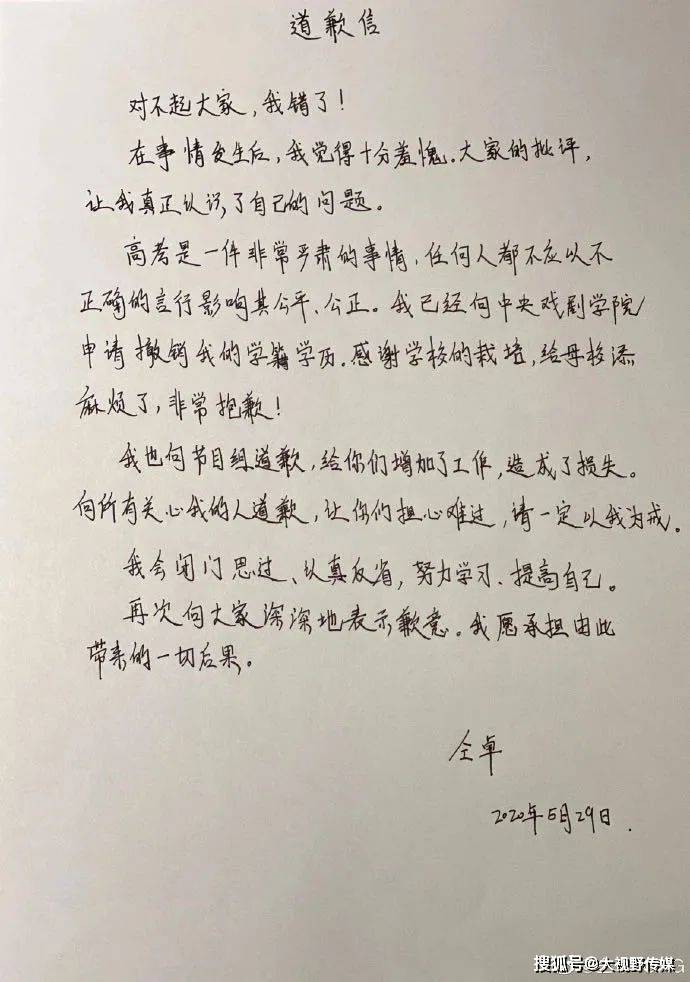 道歉信
对不起大家，我错了！
在事情发生后，我觉得十分羞愧。大家的批评，
让我真正认识了自己的问题。
高考是一件非常严肃的事情，任何人都不应以不
正确的言行影响其公平、公正。我已经向中央戏剧学院
申请撤销我的学籍学历。感谢学校的栽培，给母校添
麻烦了，非常抱歉！
我也向节目组道歉，给你们增加了工作，造成了损失。
向所有关心我的人道歉，让你们担心难过，请一定以我为戒。
我会闭门思过、认真反省，努力学习、提高自己。
再次向大家深深地表示歉意。我愿承担由此
带来的一切后果。
仝卓
2020年5月29日.
搜狐号@大视野传媒